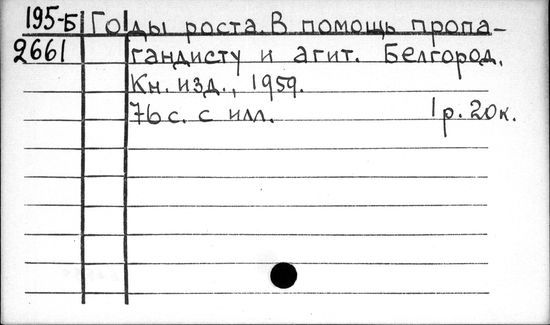 195-Б Годы роста. В помощь пропа-
2661 гандисту и агит. Белгород.
Кн. изд., 1959.
76 с. с илл. 1 р. 20 к.